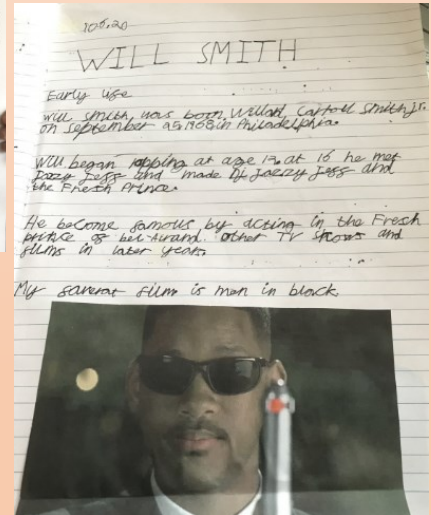 10.6.20
WILL SMITH
Early life
Will Smith was born Willard Carroll Smith jr.
on September 25 1968 in Philadelphia.
Will began rapping at age 12. at 16 he met
Jazzy Jeff and made Dj Jazzy Jeff and
the Fresh Prince.
He become famous by acting in the Fresh
prince of bel-Air and other TV shows and
films in later years.
My faverat film is men in black